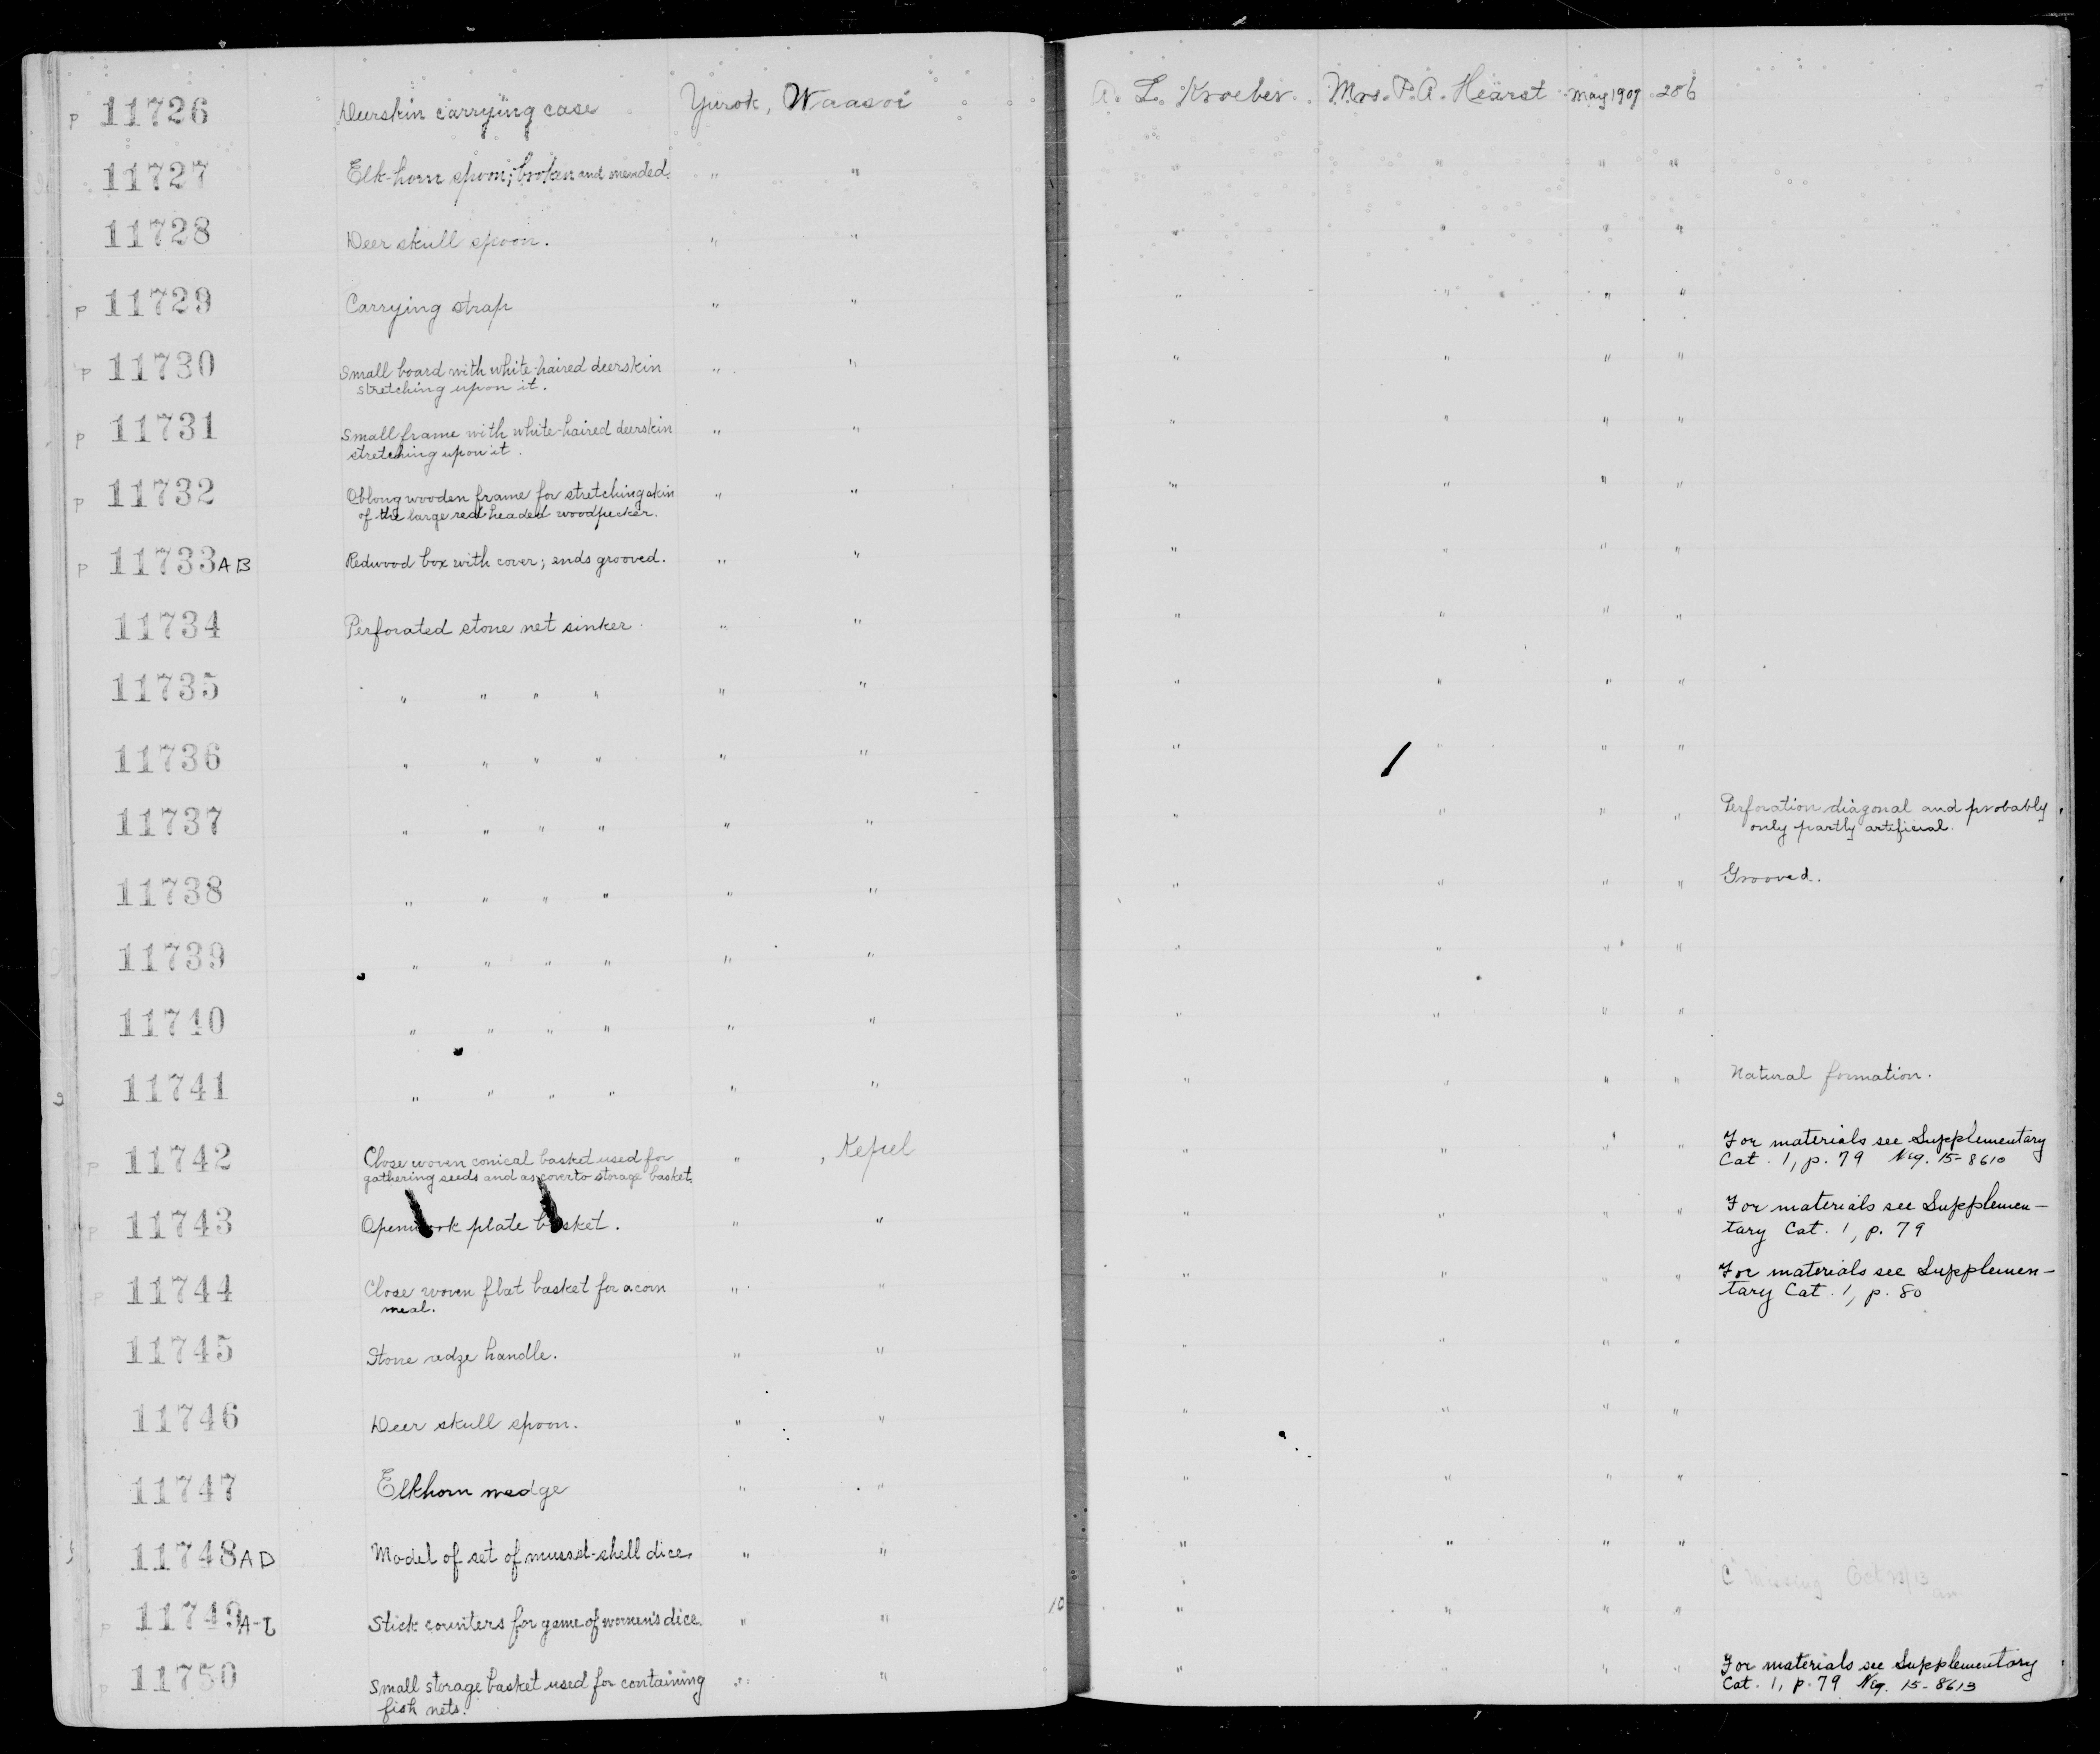 p 11726 Deerskin carrying case Yurok, Waasoi A. L. Kroeber. Mrs. P. A. Hearst May 1907 286
11727 Elk-horn spoon; broken and mended. " " " " " "
11728 Deer skull spoon. " " " " " "
p 11729 Carrying strap " " " " " "
p 11730 Small board with white-haired deerskin " " " " " "
stretching upon it.
p 11731 Small frame with white-haired deerskin " " " " " "
stretching upon it.
p 11732 Oblong wooden frame for stretching skin " " " " " "
of the large red headed woodpecker.
p 11733 A B Redwood box with cover; ends grooved. " " " " " "
11734 Perforated stone net sinker. " " " " " "
11735 " " " " " " " " " "
11736 " " " " " " " " " "
11737 " " " " " " " " " " Perforation diagonal and probably
only partly artificial.
11738 " " " " " " " " " " Grooved.
11739 " " " " " " " " " "
11740 " " " " " " " " " "
11741 " " " " " " " " " " Natural formation.
p 11742 Close woven conical basket used for " , Kepel " " " " For materials see Supplementary
gathering seeds and as cover to storage basket. Cat. 1, p. 79 Neg. 15-8610
p 11743 Openwork plate basket. " " " " " " For materials see Supplemen-
tary Cat. 1, p. 79
p 11744 Close woven flat basket for acorn " " " " " " For materials see Supplemen-
meal. tary Cat. 1, p. 80
11745 Stone adze handle. " " " " " "
11746 Deer skull spoon. " " " " " "
11747 Elkhorn wedge " " " " " "
11748 A D Model of set of mussel-shell dice. " " " " " "
"C" Missing Oct
p 11749 Stick counters for game of women's dice. " " " " " "
p 11750 Small storage basket used for containing " " " " " " For materials see Supplementary
fish nets. Cat. 1, p. 79 Neg. 15-8613